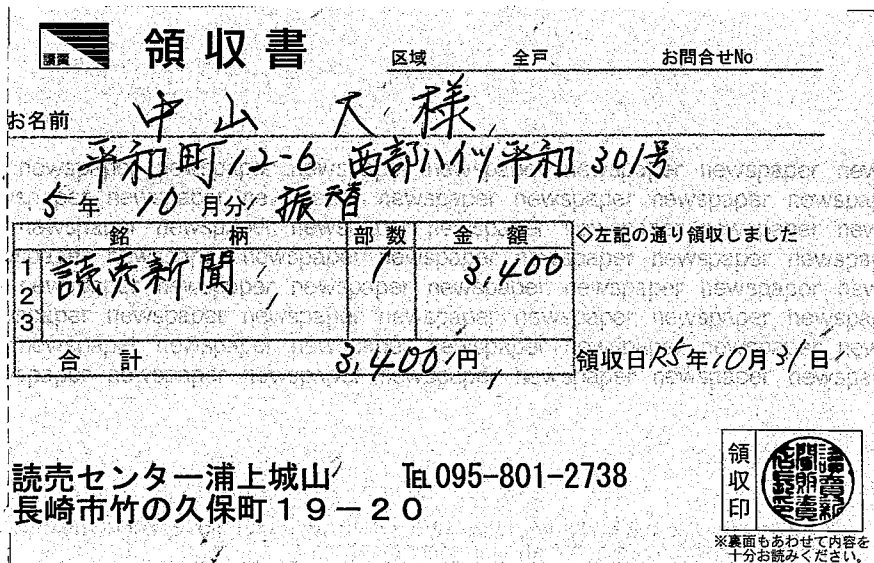 讀賣
領収書
区域 全戸 お問合せNo
お名前 中山 大 様
平和町12-6 西部ハイツ平和301号
5年10月分 振替
銘柄 部数 金額 ◇左記の通り領収しました
1 読売新聞 1 3,400
2
3
合計 3,400円 領収日R5年10月31日
読売センター浦上城山 TEL095-801-2738
長崎市竹の久保町19-20
領収印
※裏面もあわせて内容を
十分お読みください。